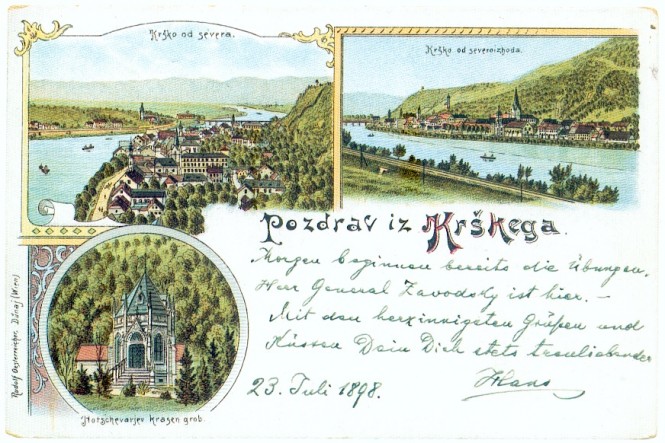 Krško od severa.
Krško od severoizhoda.
Pozdrav iz Krškega.
Morgen beginnen bereits die Übungen.
Herr General Zavodsky ist hier. –
Mit den herzinnigsten Grüßen und
Küssen Dein Dich stets treuliebender
Hans
23. Juli 1898.
Hotschevarjev krasen grob.
Rudolf Oesterreicher, Dunaj (Wien)